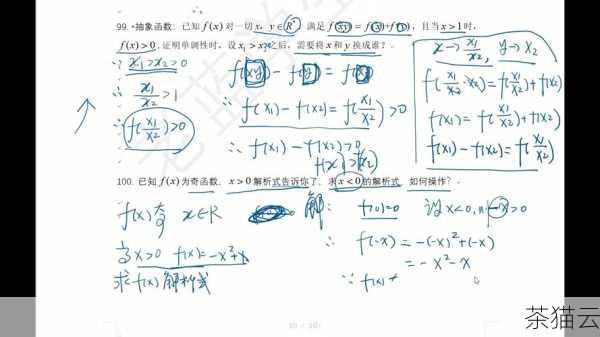 99. *抽象函数：已知 f(x) 对一切 x，y∈R⁺ 满足 f(xy) = f(x)+f(y)，且当 x>1 时，
f(x)>0，证明单调性时，设 x₁ > x₂ 之后，需要将 x 和 y 换成谁？
∵ x₁>x₂>0
∴ x₁/x₂ >1
∴ f(x₁/x₂)>0
f(xy) - f(y) = f(x)
∴ f(x₁) - f(x₂) = f(x₁/x₂) >0
∴ f(x₁) - f(x₂)>0
f(x₁)>f(x₂)
x → x₁/x₂, y → x₂
f(x₁/x₂·x₂) = f(x₁/x₂)+f(x₂)
f(x₁) = f(x₁/x₂)+f(x₂)
f(x₁) - f(x₂) = f(x₁/x₂)
100. 已知 f(x) 为奇函数，x>0 解析式告诉你了，求 x<0 的解析式，如何操作？
f(x)奇 x∈R
当x>0 f(x)=-x²+x
求f(x)解析式
解: f(0)=0 设x<0, 则-x>0
∴ f(-x) = -(-x)²+(-x)
= -x²-x
∵ f(x)
10 / 10
茶猫云